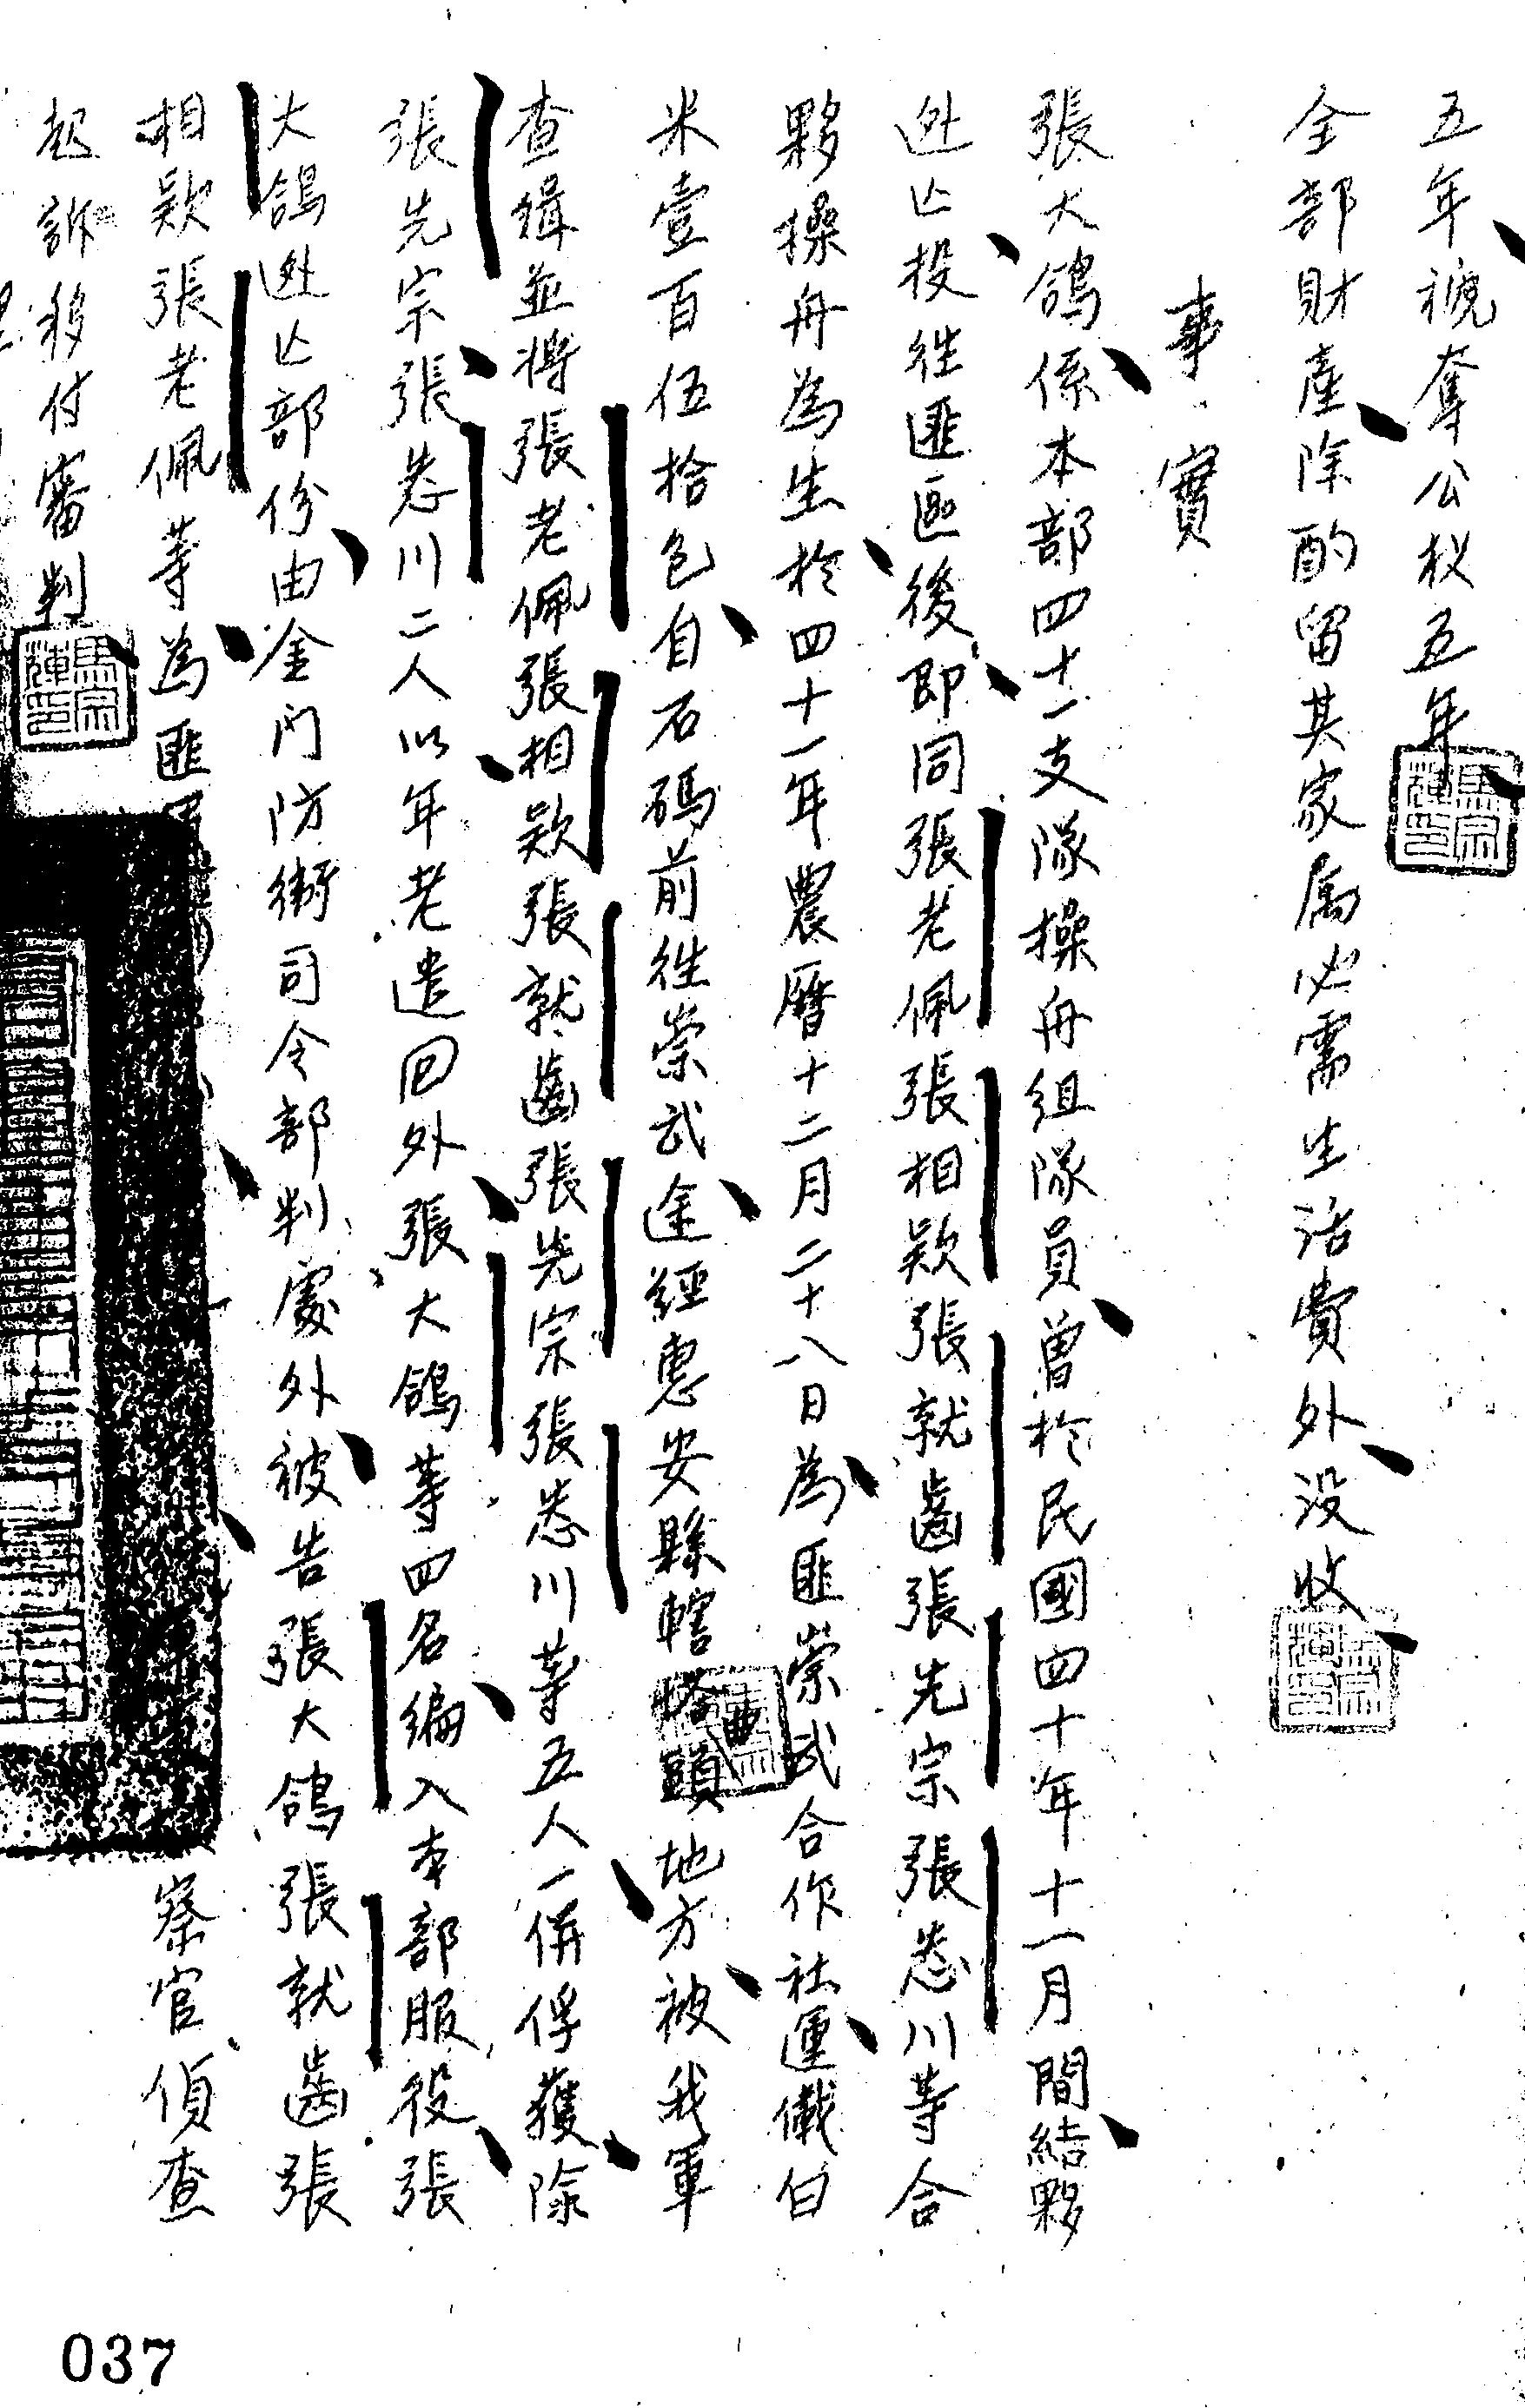 五年褫奪公权五年、
全部財產、除酌留其家属必需生活費外、没收、
事實
張大鴿係、本部四十一支隊操舟組隊員、曾於民國四十年十一月間、結夥
逃亡、投往匪區後、即同張老佩張相欵張就齒張先宗張悉川等合
夥操舟為生、於四十一年農曆十二月二十八日為、匪崇武合作社運、儎白
米壹百伍拾包、自石碼前往崇武、途經惠安縣轄頭地方被、我軍
查緝並将張老佩張相欵張就齒張先宗張悉川等五人一、併俘獲、除
張先宗張、悉川二人以、年老遣回外、張大鴿等四名編、入本部服役、張
大鴿逃亡部份、由金門防衛司令部判處外、被告張大鴿張就齒張
相欵張老佩等為、匪 察官偵查
起訴移付審判、
馬宗
037